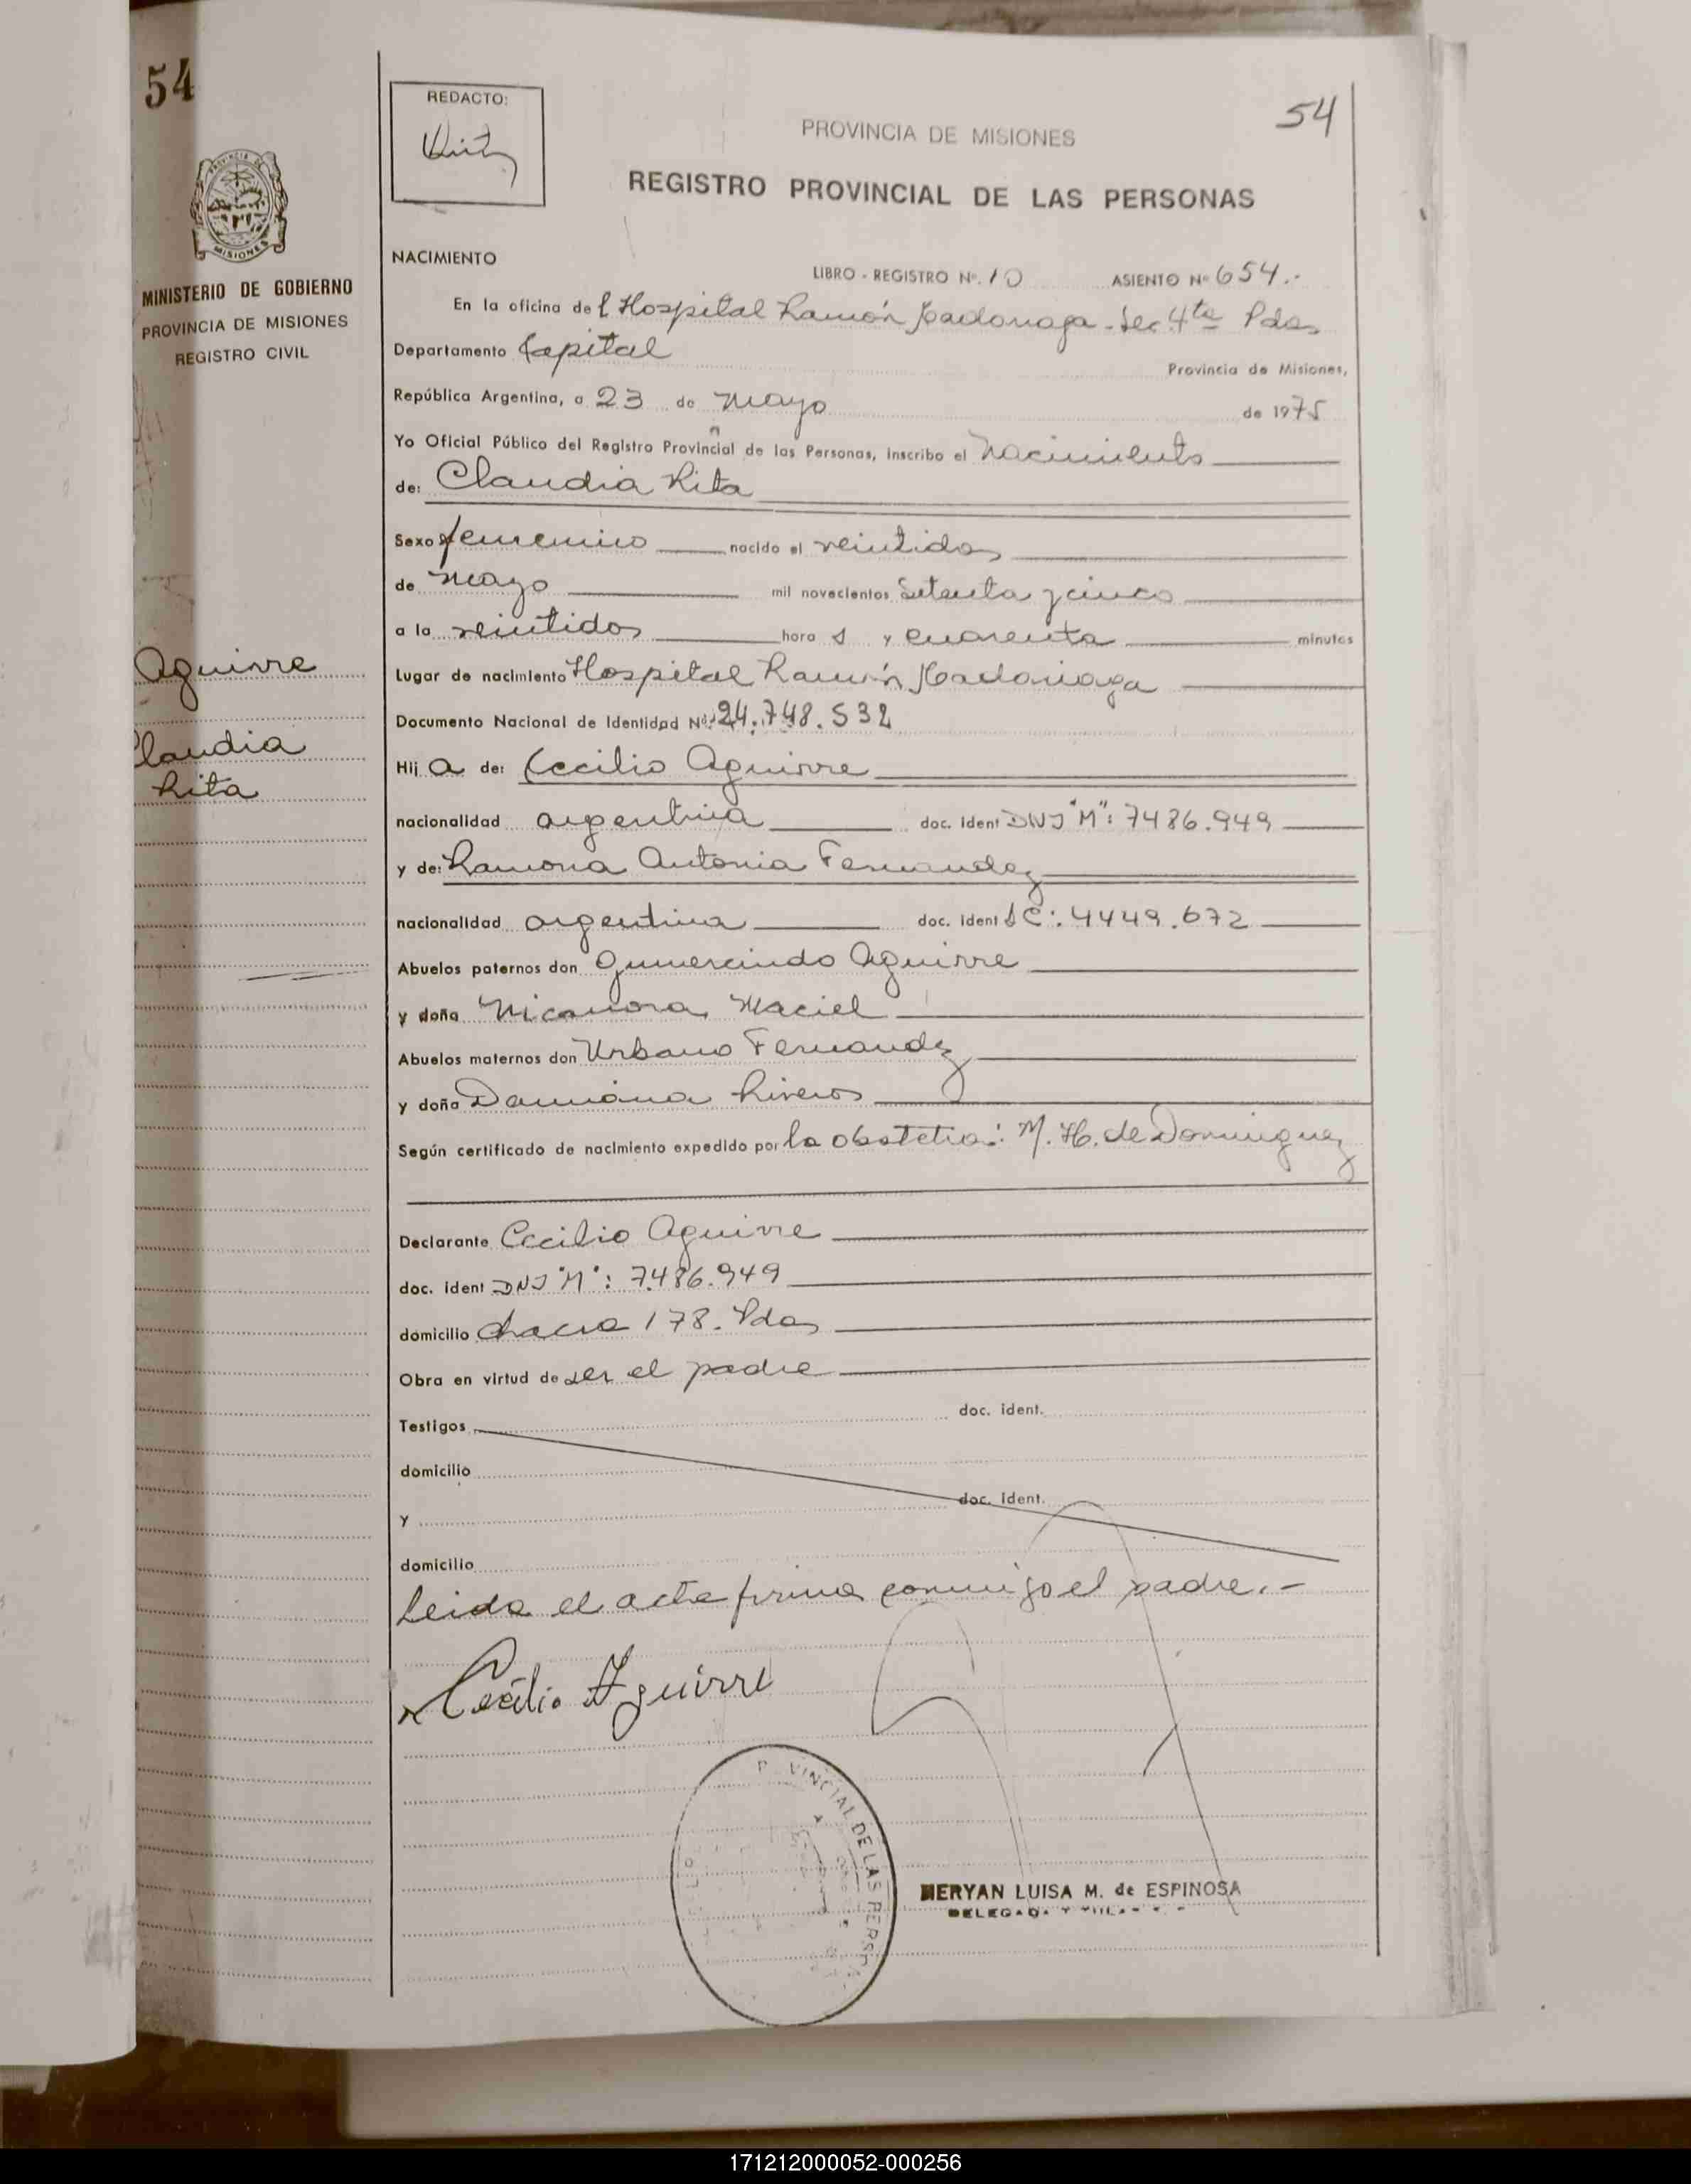 54
REDACTO:
54
PROVINCIA DE MISIONES
REGISTRO PROVINCIAL DE LAS PERSONAS
MISIONES
MINISTERIO DE GOBIERNO
PROVINCIA DE MISIONES
REGISTRO CIVIL
NACIMIENTO
LIBRO - REGISTRO Nº. 10 ASIENTO Nº 654.-
En la oficina del Hospital Ramón Madariaga - Sec. 4ta Pdas
Departamento Capital
Provincia de Misiones,
República Argentina, a 23 de Mayo de 1975
Yo Oficial Público del Registro Provincial de las Personas, inscribo el Nacimiento
de: Claudia Rita
Sexo femenino nacido el veintidos
de mayo mil novecientos setenta y cinco
a la veintidos hora s y cuarenta minutos
Aguirre
Lugar de nacimiento Hospital Ramón Madariaga
Documento Nacional de Identidad Nº 24.748.532
Claudia
Rita
Hij a de: Cecilio Aguirre
nacionalidad argentina doc. ident DNI "M": 7486.949
y de: Ramona Antonia Fernandez
nacionalidad argentina doc. ident LC: 4449.672
Abuelos paternos don Gumercindo Aguirre
y doña Nicanora Maciel
Abuelos maternos don Urbano Fernandez
y doña Damiana Riveros
Según certificado de nacimiento expedido por la obstetra: M. H. de Dominguez
Declarante Cecilio Aguirre
doc. ident DNI "M": 7486.949
domicilio chacra 178. Pdas
Obra en virtud de ser el padre
Testigos doc. ident.
domicilio
y doc. ident.
domicilio
Leida el acta firma conmigo el padre.-
Cecilio Aguirre
VINCIAL DE LAS PERSO
MERYAN LUISA M. de ESPINOSA
DELEGADA
171212000052-000256